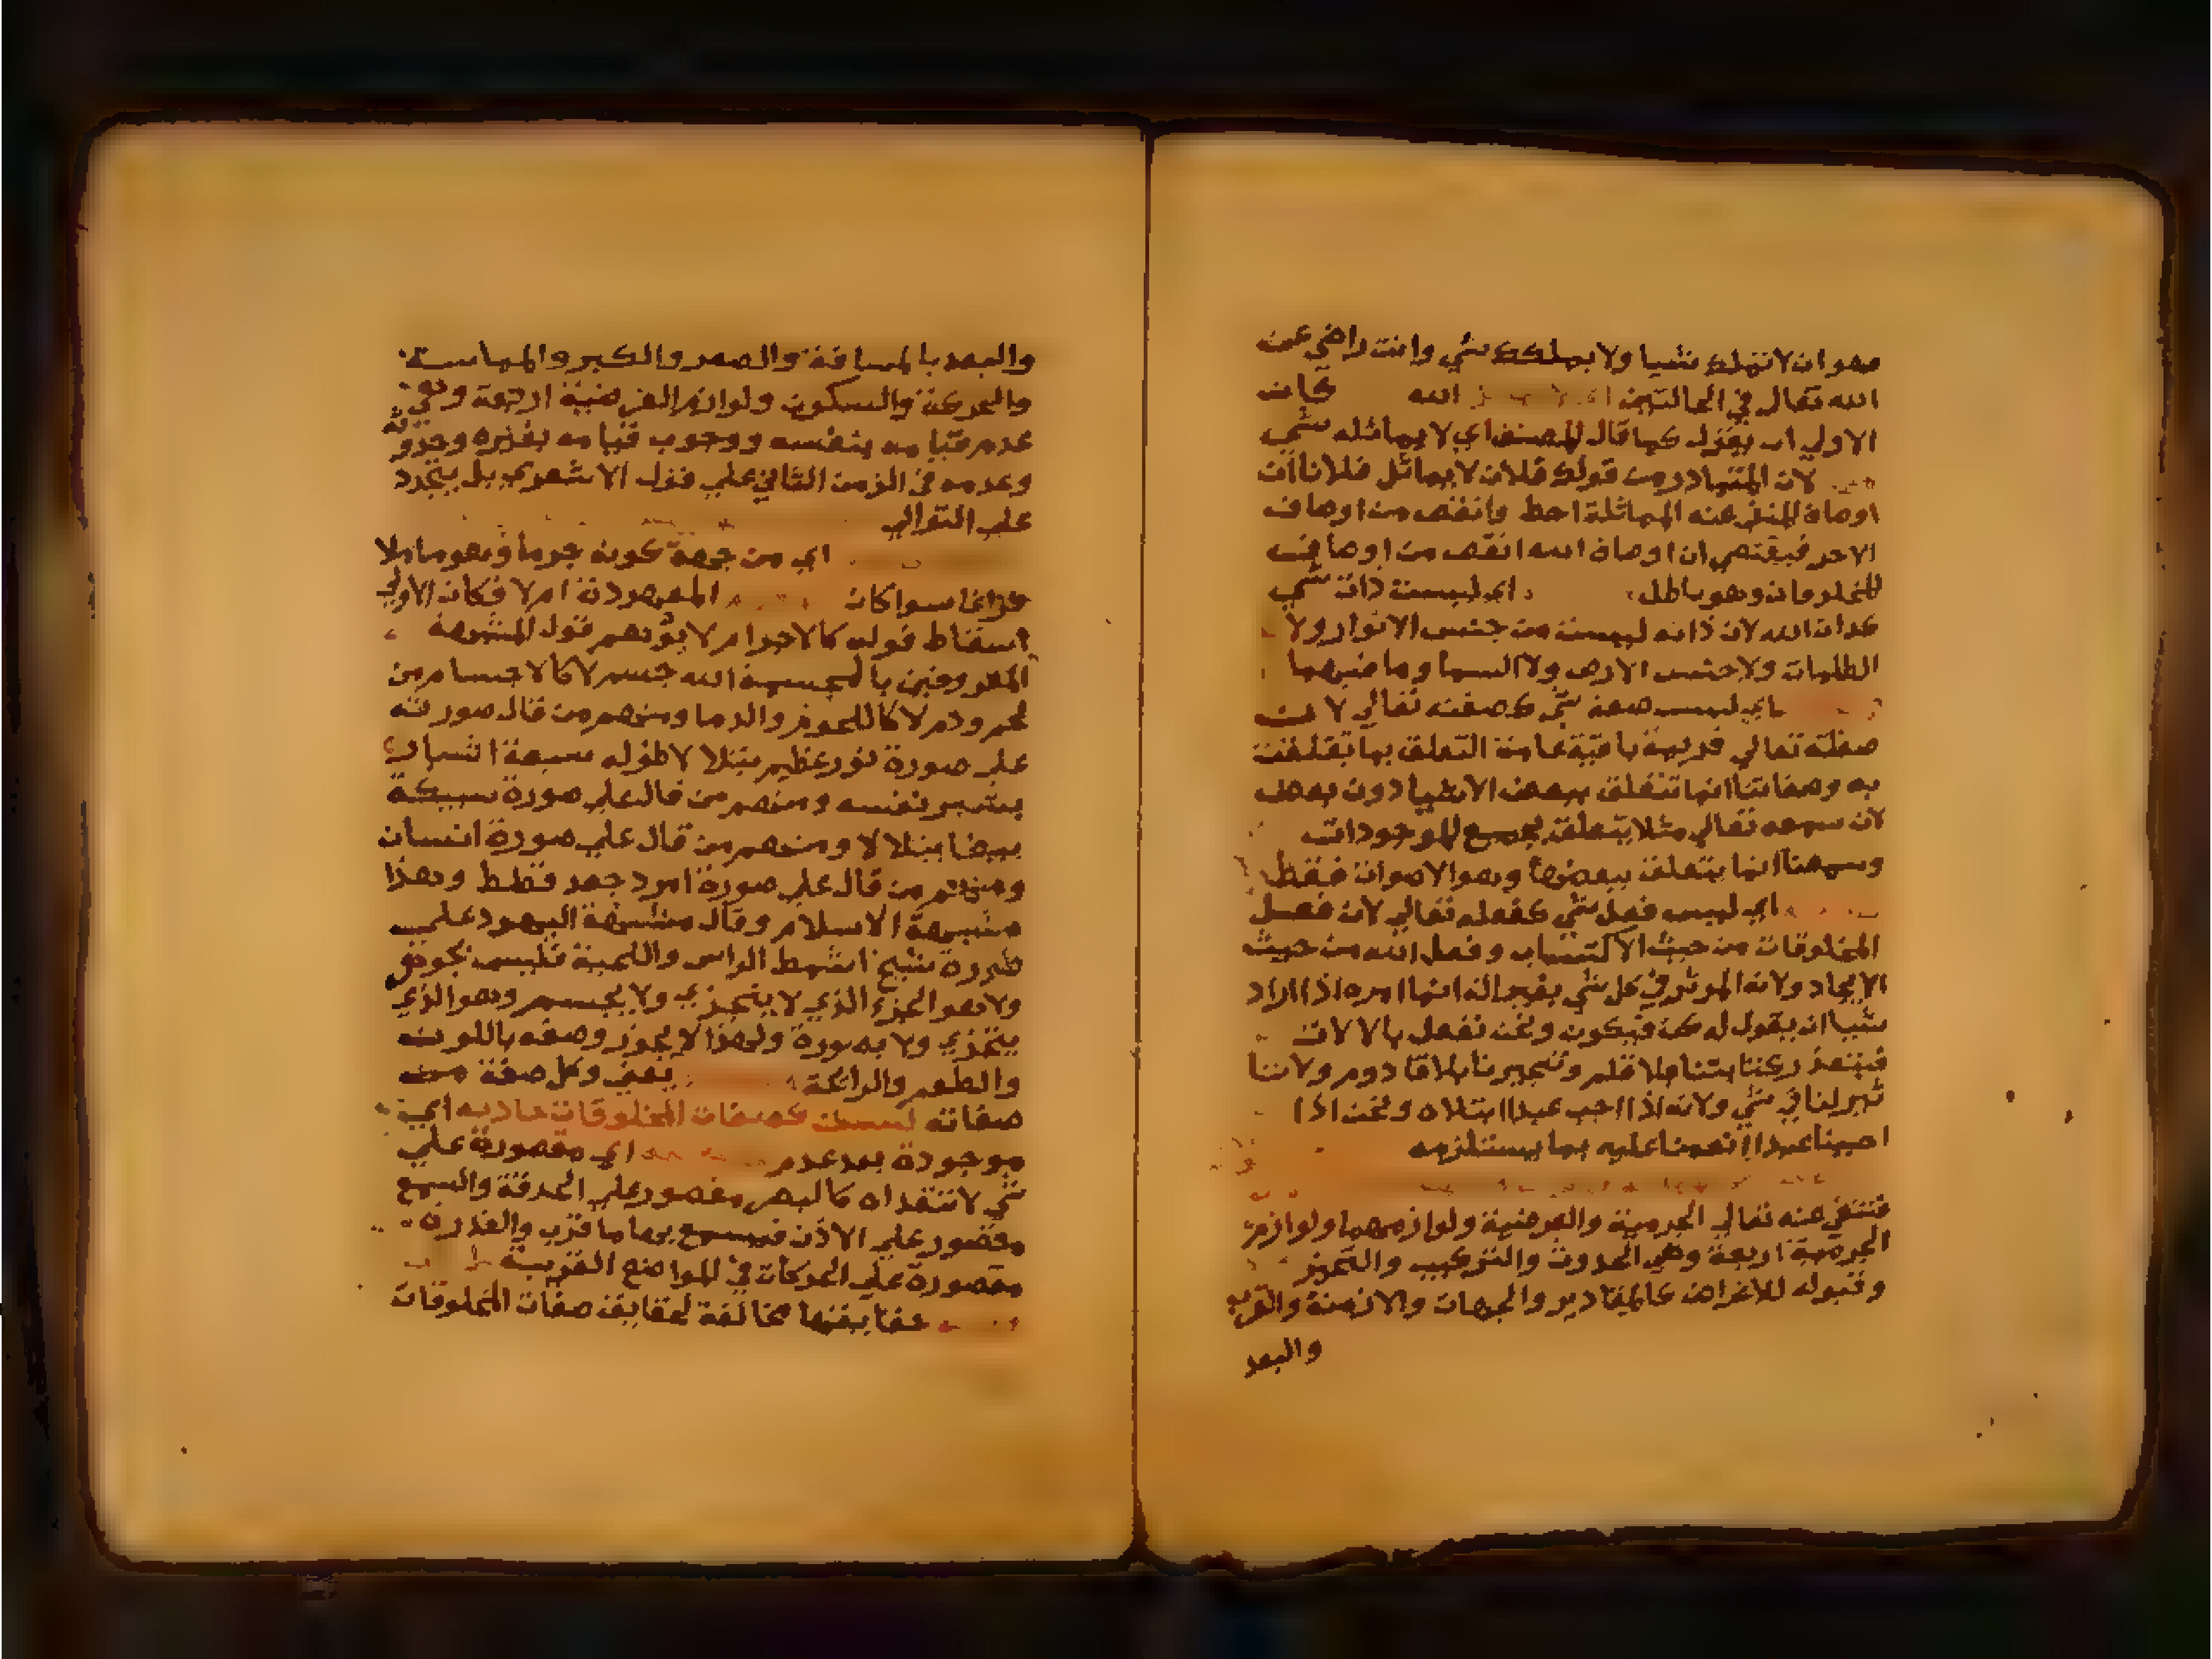 هو ان لا تملك شيا ولا يملكك شي وانت راضي عن
الله تعالي في الحالتين الله كان
الاولي ان يقول كما قال المصنف اي لا يماثله شي
لان المتبادر من قولك فلان لا يماثل فلانا ان
اوصاف المنفي عنه المماثلة احط وانقص من اوصاف
الاخر فيقتضي ان اوصاف الله انقص من اوصاف
المخلوقات وهو باطل اي ليست ذات شي
كذات الله لان ذاته ليست من جنس الانوار ولا
الظلمات ولا جنس الارض ولا السما وما فيهما
اي ليس صفة شي كصفته تعالي لان
صفته تعالي قديمة باقية عامة التعلق بما تعلقت
به وصفاتنا انما تتعلق ببعض الاشيا دون بعض
لان سمعه تعالي مثلا يتعلق بجميع الموجودات
وسمعنا انما يتعلق ببعضها وهو الاصوات فقط
اي ليس فعل شي كفعله تعالي لان فعل
المخلوقات من حيث الاكتساب وفعل الله من حيث
الايجاد ولانه الموثر في كل شي انما امره اذا اراد
شيا ان يقول له كن فيكون ونحن نفعل بالالات
فيتعذر كتابتنا بلا قلم بلا قادوم ولا
لنا في شي ولانه اذا احب عبدا ابتلاه ونحن اذا
احببنا عبدا انعمنا عليه بما يستلزمه
فتنتفي عنه تعالي الجرمية والعرضية ولوازمهما ولوازم
الجرمية اربعة وهي الحدوث والتركيب والتحيز
وقبوله للاعراض كالمقادير والجهات والازمنة والقرب
والبعد
والبعد بالمسافة والصغر والكبر والمماسة
والحركة والسكون ولوازم العرضية اربعة وهي
عدم قيامه بنفسه ووجوب قيامه بغيره وحدوثه
وعدمه في الزمن الثاني علي قول الاشعري بل يتجدد
علي التوالي
اي من جهة كونه جرما وهو ما ملا
فراغا سوا كان المعهودة ام لا فكان الاولي
اسقاط قوله كالاجرام لا يوهم قول المشبهة
المعروفين بالمجسمة الله جسم لا كالاجسام من
لحم ودم لا كاللحوم والدما ومنهم من قال صورته
علي صورة نور عظيم يتلالا طوله سبعة اشبار
بشبر نفسه ومنهم من قال علي صورة سبيكة
بيضا يتلالا ومنهم من قال علي صورة انسان
ومنهم من قال علي صورة امرد جعد قطط وهذا
مشبهة الاسلام وقال مشبهة اليهود علي
صورة شيخ اشمط الراس واللحية فليس بجوهر
ولا هو الجزء الذي لا يتجزي ولا بجسم وهو الذي
يتجزي ولا بصورة ولهذا لا يجوز وصفه باللون
والطعم والرائحة يعني وكل صفة من
صفاته ليست كصفات المخلوقات حادثه اي
موجودة بعد عدم اي مقصورة علي
شي لا تتعداه كالبصر مقصور علي الحدقة والسمع
مقصور علي الاذن فيسمع بهما ما قرب والقدرة
مقصورة علي الحركات في المواضع القريبة
حقايقها مخالفة لحقايق صفات المخلوقات